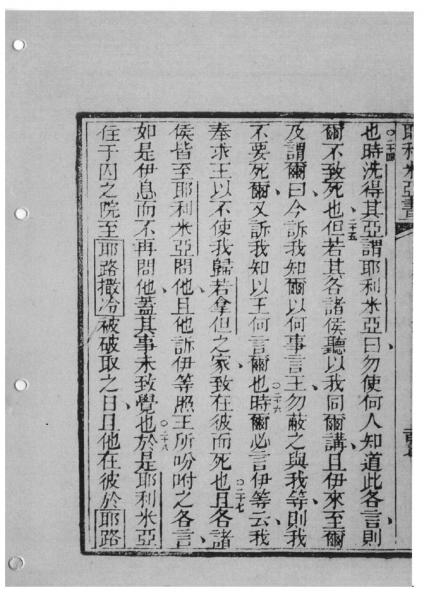 耶利米亞書
也時洗得其亞謂耶利米亞曰勿使何人知道此各言則
爾不致死也但若其各諸侯聽以我同爾講且伊來至爾
及謂爾曰今訴我知爾以何事言王勿蔽之與我等則我
不要死爾又訴我知以王何言爾也時爾必言伊等云我
奉求王以不使我歸若拿但之家致在彼而死也且各諸
侯皆至耶利米亞問他且他訴伊等照王所吩咐之各言
如是伊息而不再問他蓋其事未致覺也於是耶利米亞
住于囚之院至耶路撒冷被破取之日且他在彼於耶路
○二十四
○二十五
○二十六
○二十七
○二十八